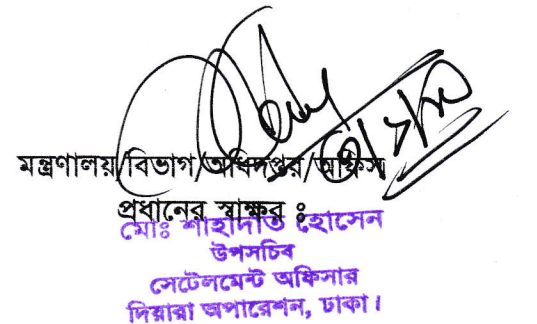 মন্ত্রণালয়/বিভাগ/অধিদপ্তর/অফিস
প্রধানের স্বাক্ষর ঃ
মোঃ শাহাদাত হোসেন
উপসচিব
সেটেলমেন্ট অফিসার
দিয়ারা অপারেশন, ঢাকা।